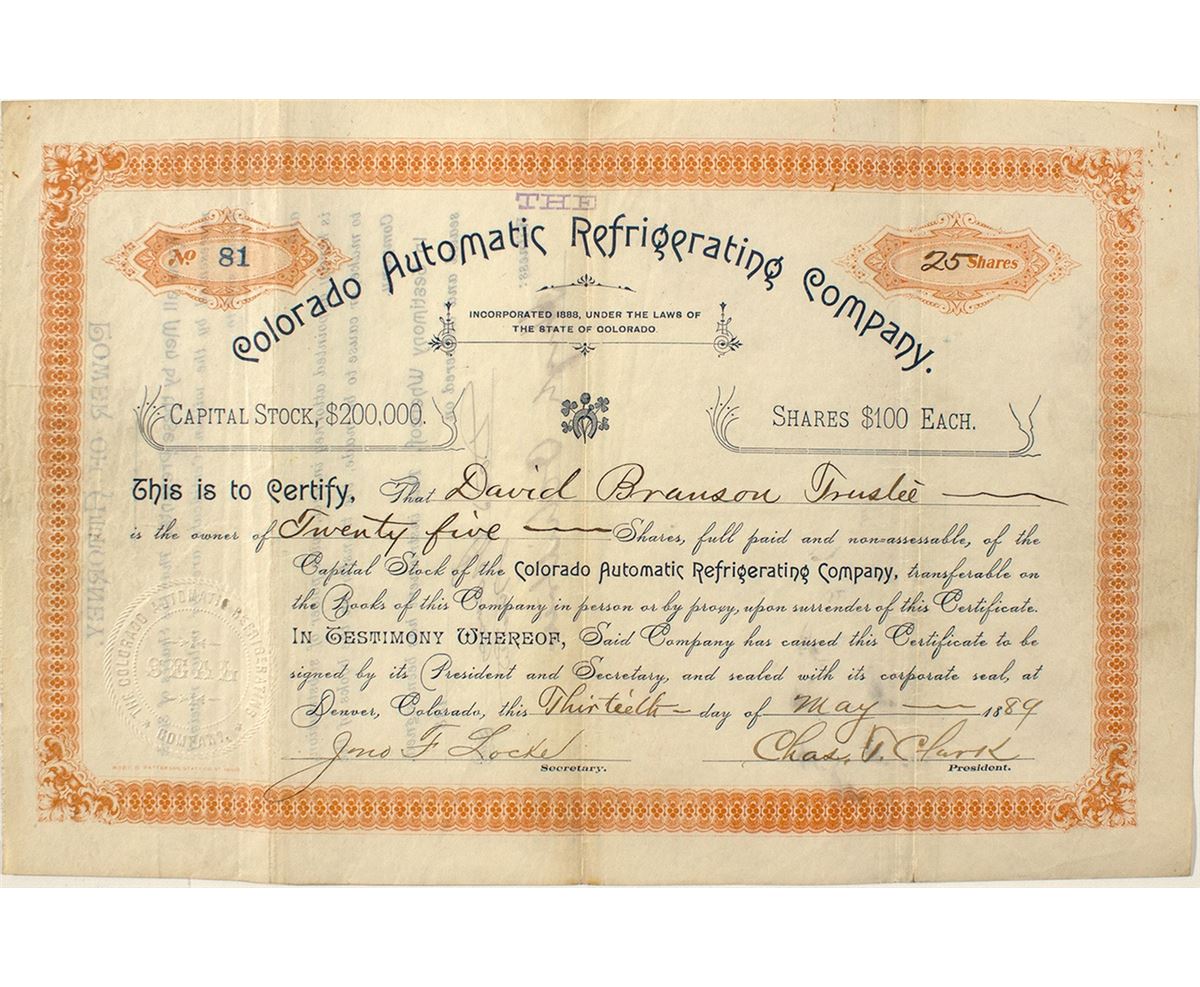 THE
Colorado Automatic Refrigerating Company.
No 81
25 Shares
INCORPORATED 1888, UNDER THE LAWS OF
THE STATE OF COLORADO.
CAPITAL STOCK, $200,000.
SHARES $100 EACH.
This is to Certify, That David Branson Trustee
is the owner of Twenty five Shares, full paid and non-assessable, of the
Capital Stock of the Colorado Automatic Refrigerating Company, transferable on
the Books of this Company in person or by proxy, upon surrender of this Certificate.
IN TESTIMONY WHEREOF, Said Company has caused this Certificate to be
signed by its President and Secretary, and sealed with its corporate seal, at
Denver, Colorado, this Thirteeth day of May 1889
Jno F Locke
Secretary.
Chas. T. Clark
President.
THE COLORADO AUTOMATIC REFRIGERATING COMPANY
SEAL
POWER OF ATTORNEY